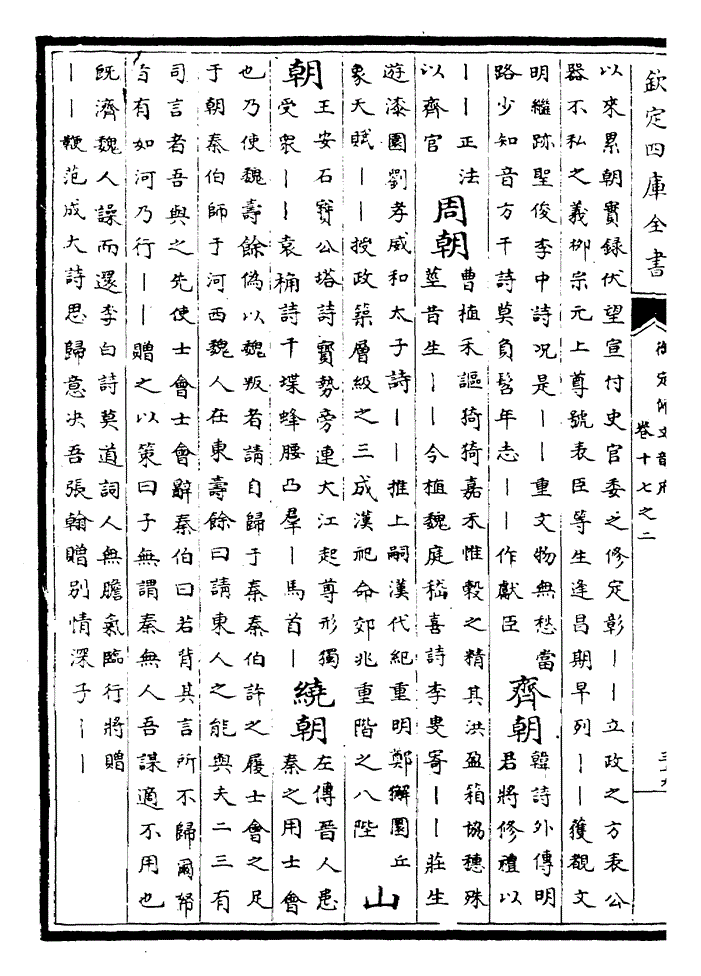 欽定四庫全書
御定佩文韻府
卷十七之二
以來累朝實録伏望宣付史官委之修定彰||立政之方表公
器不私之義柳宗元上尊號表臣等生逢昌期早列||獲覩文
明繼跡聖俊李中詩况是||重文物無愁當
路少知音方干詩莫負髫年志||作獻臣
齊朝
韓詩外傳明
君將修禮以
||正法
以齊官
周朝
曹植禾謳猗猗嘉禾惟穀之精其洪盈箱協穗殊
莖昔生||今植魏庭嵇喜詩李叟寄||莊生
遊漆園劉孝威和太子詩||推上嗣漢代紀重明鄭獬圜丘
象天賦||授政築層級之三成漢祀命郊兆重階之八陛
山
朝
王安石寶公塔詩寶勢旁連大江起尊形獨
受衆||袁桷詩千堞蜂腰凸羣|馬首|
繞朝
左傳晉人患
秦之用士會
也乃使魏壽餘偽以魏叛者請自歸于秦秦伯許之履士會之足
于朝秦伯師于河西魏人在東壽餘曰請東人之能與夫二三有
司言者吾與之先使士會士會辭秦伯曰若背其言所不歸爾帑
者有如河乃行||贈之以策曰子無謂秦無人吾謀適不用也
既濟魏人譟而還李白詩莫道詞人無膽氣臨行將贈
||鞭范成大詩思歸意决吾張翰贈別情深子||